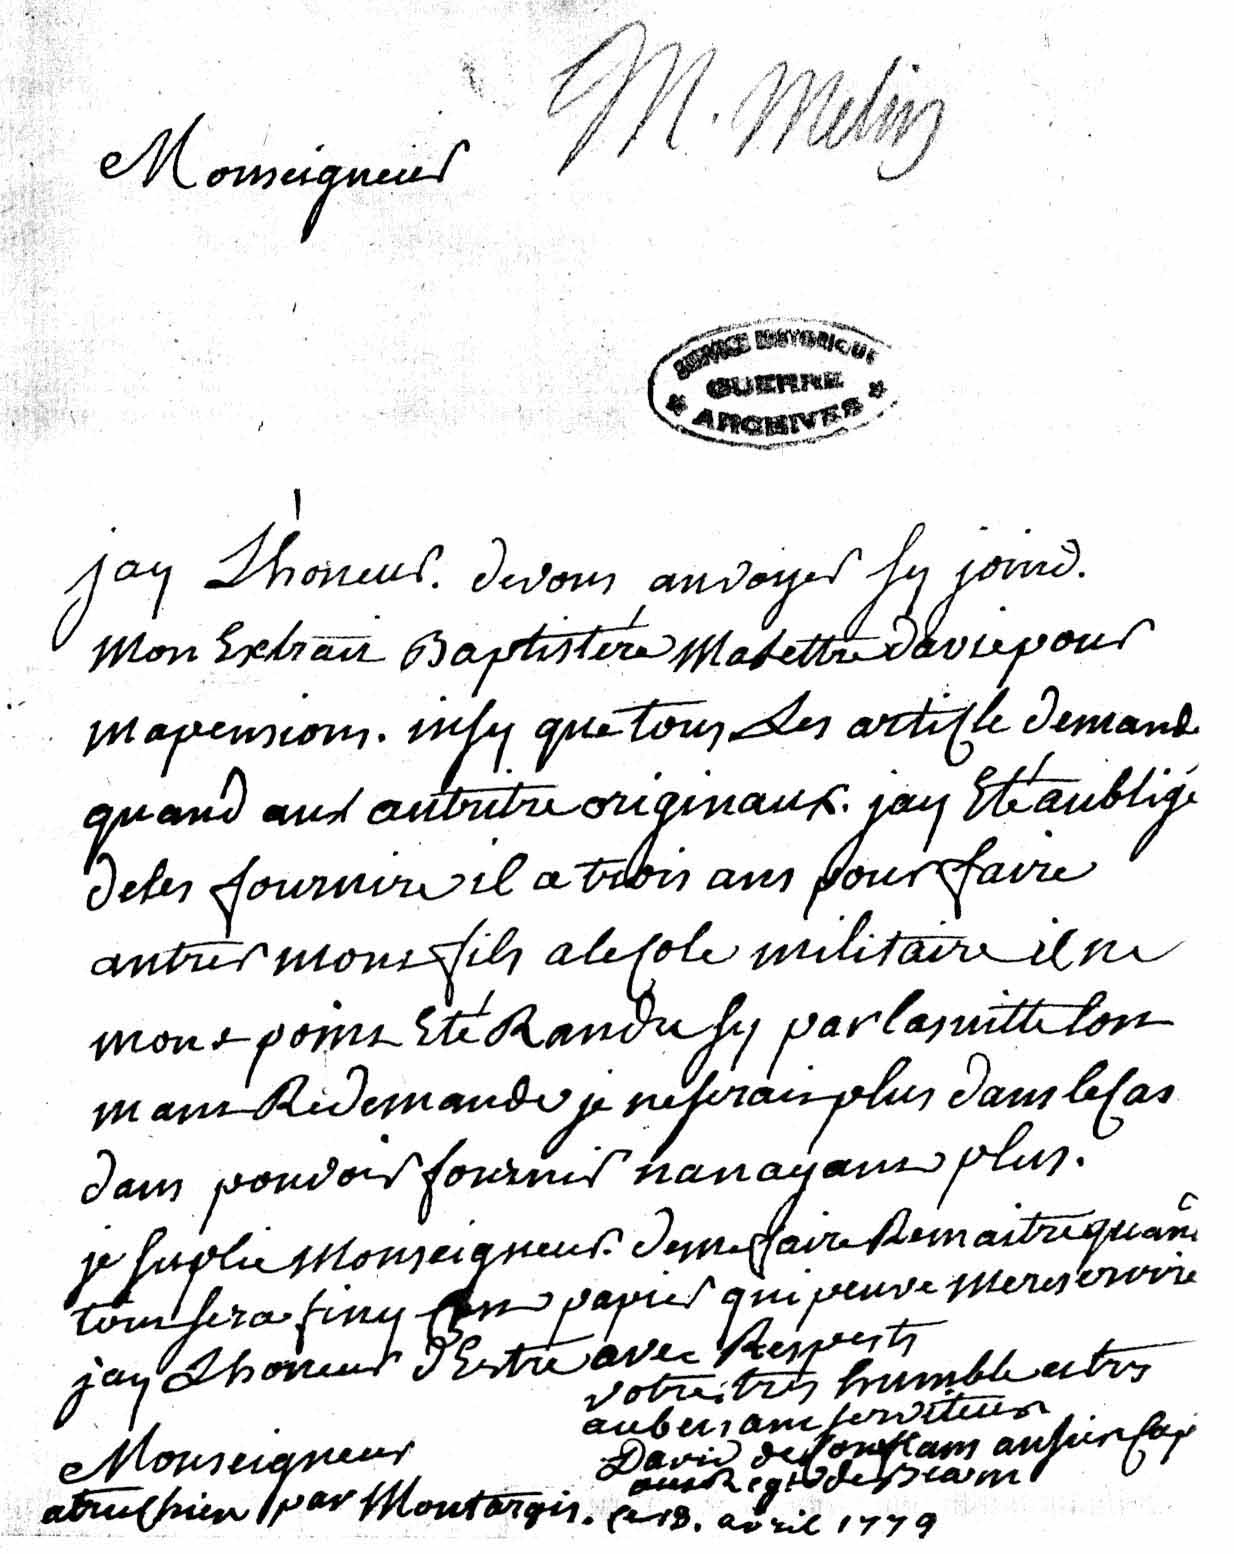 M. Melin
Monseigneur
SERVICE HISTORIQUE
GUERRE
ARCHIVES
jay Lhoneur. devous anvoyer sy joind.
mon Extrait Baptistére Malettre davie pour
mapensions. insy que tous Les article demande
quand aux autritre originaux. jay Eté aubligé
deles fournire il a trois ans pour faire
antrer mont fils alecole militaire il ne
mont point Eté Randu sy par lasuitte lont
mant Redemande je neserait plus dans le cas
dans pouvoir fournir nanayant plus.
je suplie Monseigneur. deme faire Remaitre quand
tout sera finy papier qui peuve mereservire
jay Lhoneur d'Estre avec Respects
votre tres humble et tres
aubeisant serviteur
David de Conflans ansien Cap
aux Regt de Bearn
Monseigneur
atruchien par Montargis. Ce 18. avril 1779